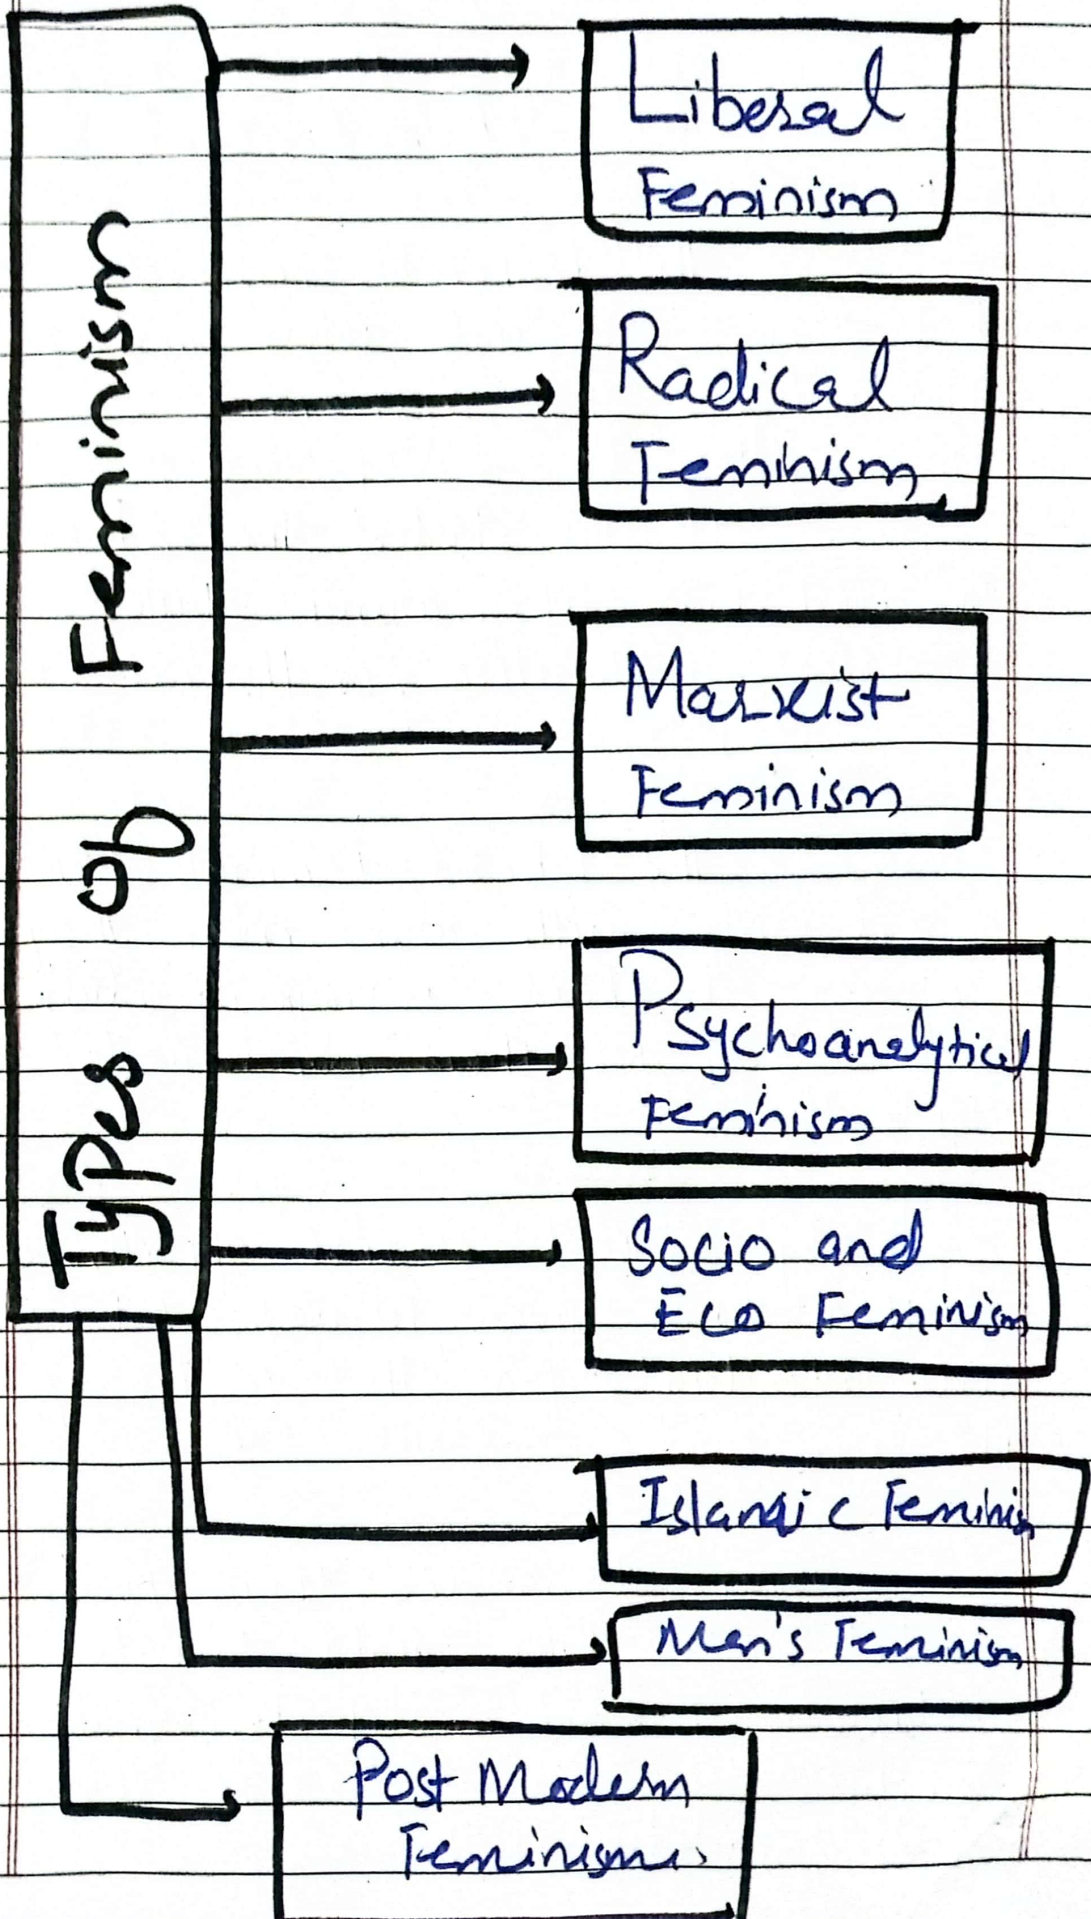 Types of Feminism
Liberal
Feminism
Radical
Feminism
Marxist
Feminism
Psychoanalytical
Feminism
Socio and
Eco Feminism
Islamic Feminism
Men's Feminism
Post Modern
Feminism